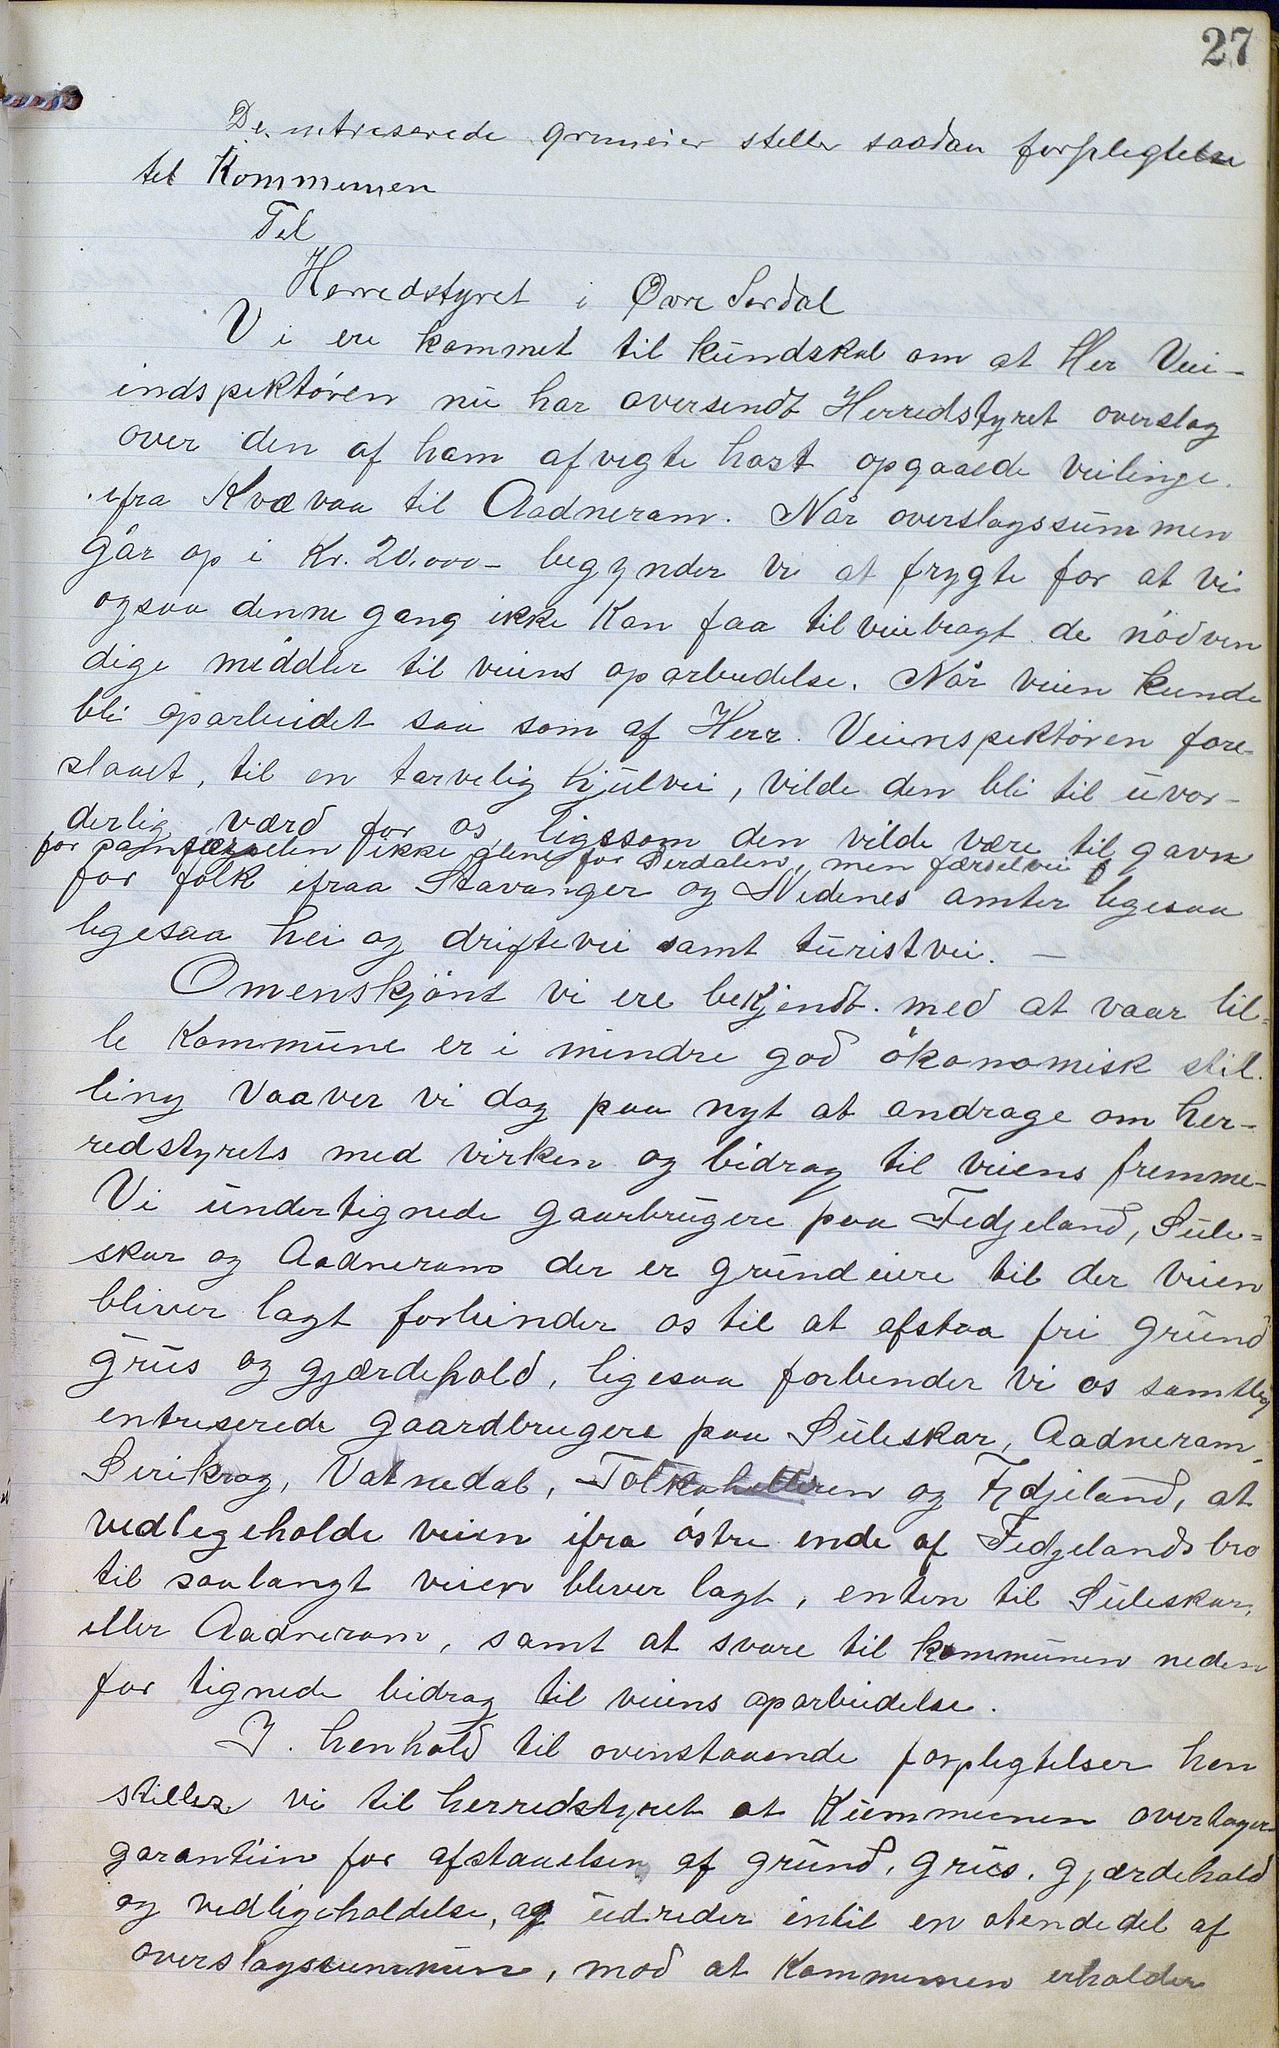 27
De intreserede gruneier stiller saadan forpligtelse
til Kommunen
Til
Herredstyret i Øvre Serdal
Vi ere kommet til kundskab om at Her Vei-
indspektören nu har oversendt Herredstyret overslag
over den af ham afvigte høst opgaaede veilinge.
ifra Kvævaa til Aadneram. Når overslagssummen
går op i Kr. 20.000 – begynder vi at frygte for at vi
ogsaa denne gang ikke kan faa tilveiebragt de nödven
dige middler til veiens oparbeidelse. Når veien kunde
bli oparbeidet saa som af Herr. Veiinspektøren fore-
slaaet, til en tarvelig hjulvei, vilde den bli til uvor-
derlig værd for os ligesom den vilde være til gavn
for samfærselen ikke alene for Serdalen, men færselvei
for folk ifraa Stavanger og Nedenes amter ligesaa
ligesaa hei og driftevei samt turistvei. —
Omenskjönt vi ere bekjendt med at vaar lil-
le Kommune er i mindre god ökonomisk stil-
ling vaaver vi dog paa nyt at andrage om her-
redstyrets med virken og bidrag til veiens fremme-
Vi undertignede gaarbrugere paa Fidjeland, Sule-
skar og Aadneram der er grundeiere til der veien
bliver lagt forbinder os til at afstaa fri grund
grus og gjærdehold, ligesaa forbinder vi os samtlig
entreserede gaardbrugere paa Suleskar, Aadneram,
Serikrag, Vatnedal, Tolkahelleren og Fidjeland, at
vedligeholde veien ifra östre ende af Fidjelandsbro
til saalangt veien bliver lagt, enten til Suleskar,
eller Aadneram, samt at svare til kommunen neden
for tignede bidrag til veiens oparbeidelse.
I henhold til ovenstaaende forpligtelser hen
stiller vi til herredstyret at Kummunen overtager
garantiin for afstaaelsen af grund, grus, gjærdehold
og vedligeholdelse, og udreder intil en otendedel af
overslagsummen, mod at Kommunen erholder